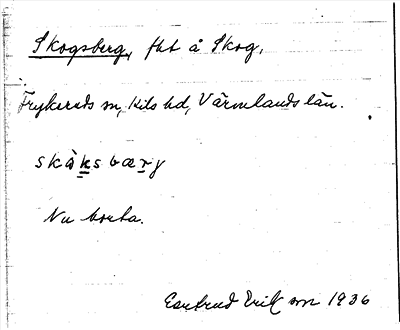 Skogsberg, fht å Skog,
Frykeruds sn, Kils hd, Värmlands län.
skàksbærj
Nu borta.
Erik sm 1936